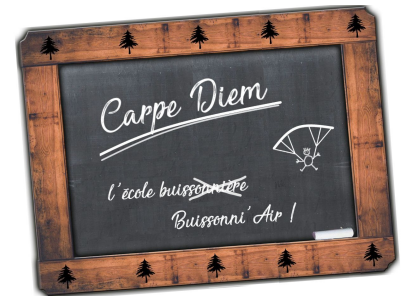 Carpe Diem
l'école buissonnière
Buissonni'Air !